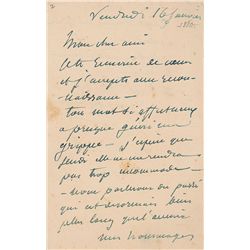 Vendredi 16 janvier
Mon cher ami
de cœur
et j'accepte avec recon-
naissance —
ton mot si affectueux
a presque guéri ma
grippe — j'espère que
jeudi elle ne me rendra
pas trop incommode —
— Nous parlerons du passé
qui est désormais bien
plus long que l'avenir
mes hommages